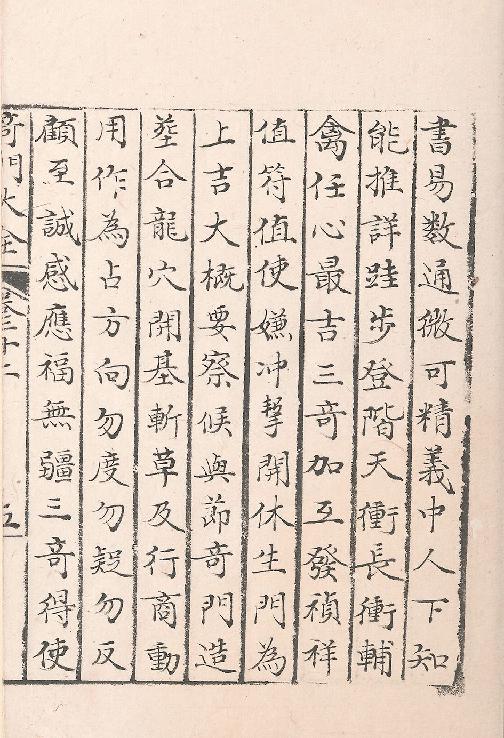 書易数通微可精義中人下知
能推詳跬步登階天衝長衝輔
禽任心最吉三竒加互發禎祥
值符值使嫌冲擊開休生門為
上吉大概要察候與莭竒門造
塟合龍穴開基斬草及行商動
用作為占方向勿度勿疑勿反
顧至誠感應福無疆三竒得使
竒門大全 卷二十二 五